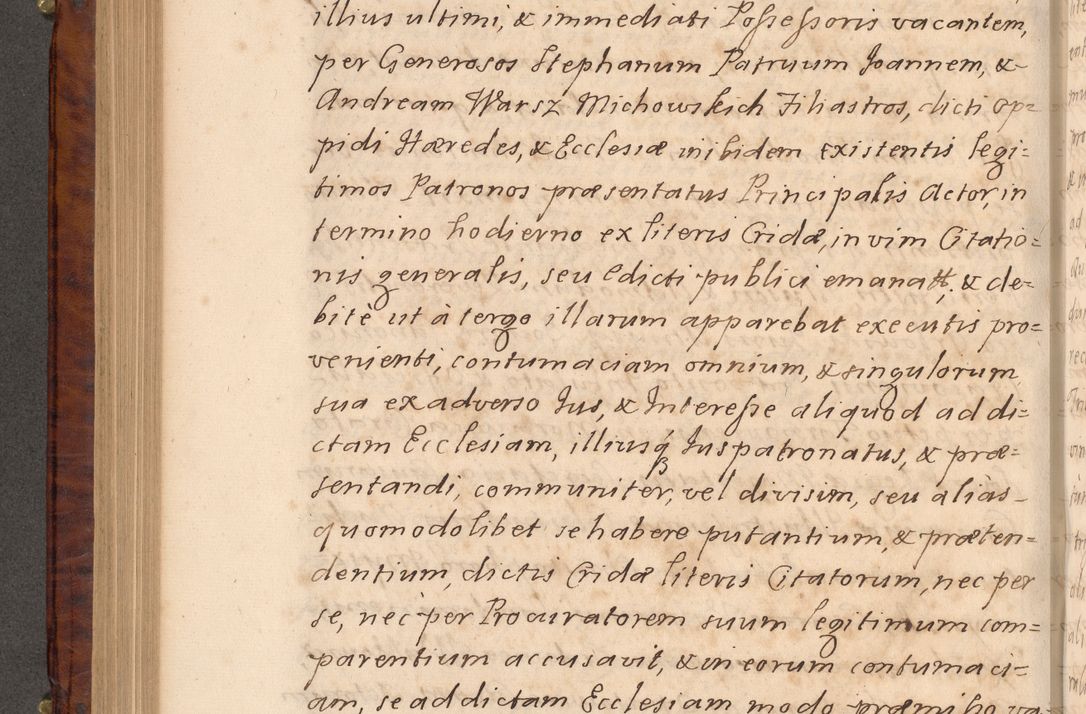 illius ultimi, & immediati Possessoris vacantem,
per Generosos Stephanum Patruum Joannem, &
Andream Warsz Michowskich Filiastros, dicti Op=
pidi Hæredes, & Ecclesiæ inibidem existentis legi=
timos Patronos præsentatus Principalis Actor, in
termino hodierno ex literis Cridæ, in vim Citatio=
nis generalis, seu edicti publici emanatt, & de=
bitè ut à tergo illarum apparebat executis pro=
venienti, contumaciam omnium, & singulorum
sua ex adverso Jus, & Interesse aliquod ad di=
ctam Ecclesiam, illiusq́ Juspatronatus, & præ=
sentandi, communiter, vel divisim, seu aliàs
quomodolibet se habere putantium, & præten=
dentium, dictis Cridæ literis Citatorum, nec per
se, nec per Procuratorem suum legitimum com=
parentium accusavit, & in eorum contumaci=
am, se ad dictam Ecclesiam modo præmisso va=